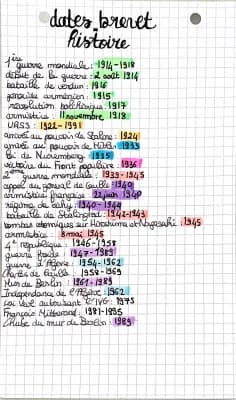 dates brevet
histoire
1ère guerre mondiale : 1914-1918
début de la guerre : 2 août 1914
bataille de verdun : 1916
génocide arménien : 1915
révolution bolchévique : 1917
armistice : 11 novembre 1918
URSS : 1922-1991
arrivée au pouvoir de Staline : 1924
arrivée au pouvoir de Hitler : 1933
loi de Nuremberg : 1935
victoire du Front populaire : 1936
2ème guerre mondiale : 1939-1945
appel du général de Gaulle : 1940
armistice française : 22 juin 1940
régime de Vichy : 1940-1944
bataille de Stalingrad : 1942-1943
bombes atomiques sur Hiroshima et Nagasaki : 1945
armistice : 8 mai 1945
4e république : 1946-1958
guerre froide : 1947-1989
guerre d'Algérie : 1954-1962
Charles de Gaulle : 1958-1969
Mur de Berlin : 1961-1989
Indépendance de l'Algérie : 1962
Loi Veil autorisant l'IVG : 1975
François Mitterrand : 1981-1995
Chute du mur de Berlin : 1989